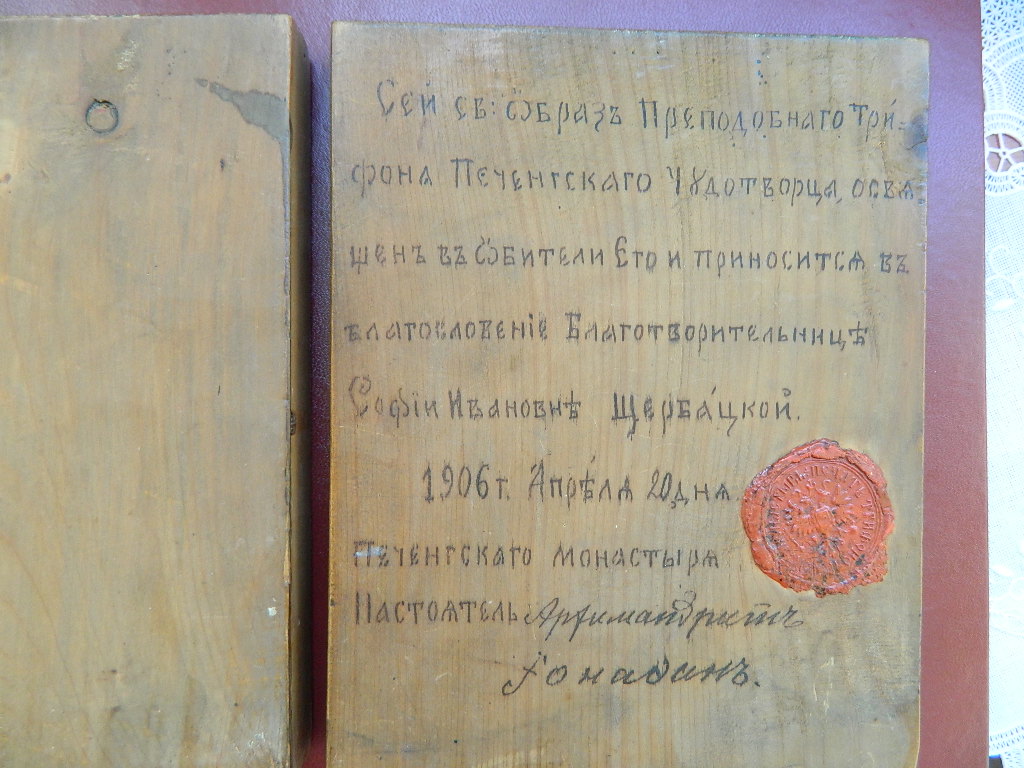 Сей св: Ѿбразъ Преподобнаго Три-
фона Печенгскаго Чудотворца, освѧ
щенъ въ Ѿбители Его и приноситсѧ въ
благословеніе Благотворительницѣ
Софіи Ивановнѣ Щерба́цкой.
1906 г. Апрѣлѧ 20 днѧ
Печенгскаго монастырѧ
Настоѧтель Архимандритъ
Іонаѳанъ.